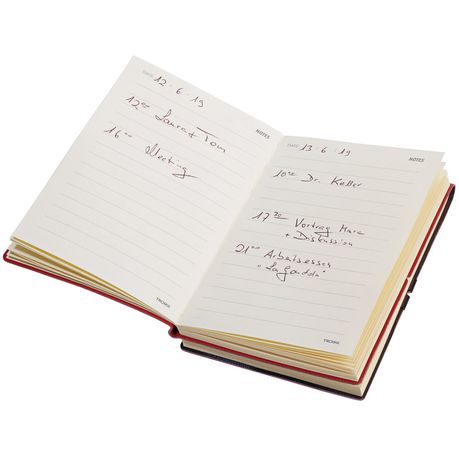 DATE 12 · 6 · 19
NOTES
12⁰⁰ Laurent Tom
16⁰⁰ Meeting
TROIKA
DATE 13 · 6 · 19
NOTES
10³⁰ Dr. Keller
17³⁰ Vortrag Marc
+ Diskussion
21⁰⁰ Arbeitsessen
"La Gondola"
TROIKA